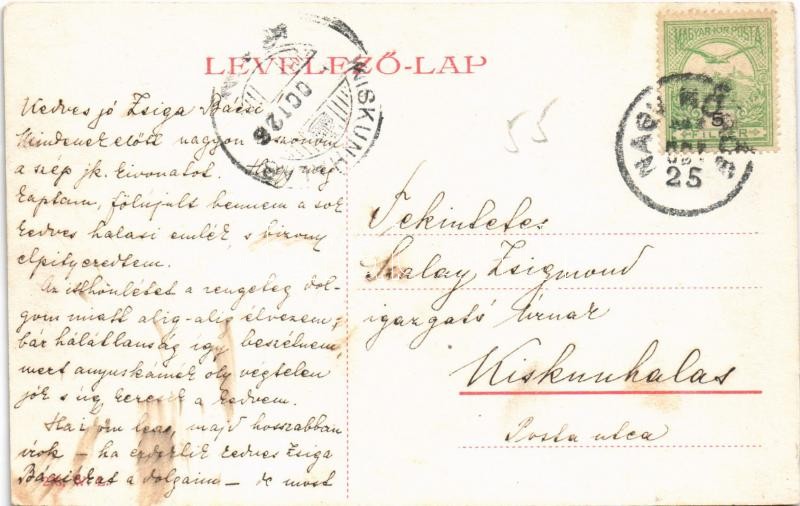 LEVELEZŐ-LAP
MAGYAR KIR. POSTA
FILLÉR
KISKUNH
OCT 26
NAGY
25
55
Kedves jó Zsiga Bácsi
Mindenek előtt nagyon köszönöm
a szép jk. kivonatot. Hogy meg
kaptam, fölújult bennem a sok
kedves halasi emlék, s bizony
elpityeredtem.
Az itthonlétet a rengeteg dol-
gom miatt alig-alig élvezem;
bár hálátlanság így beszélnem,
mert anyuskámék oly végtelen
jók s úgy keresik a kedvem.
Ha időm lesz, majd hosszabban
írok — ha érdeklik kedves Zsiga
Bácsiékat a dolgaim — de most
Tekintetes
Szalay Zsigmond
igazgató úrnak
Kiskunhalas
Posta utca